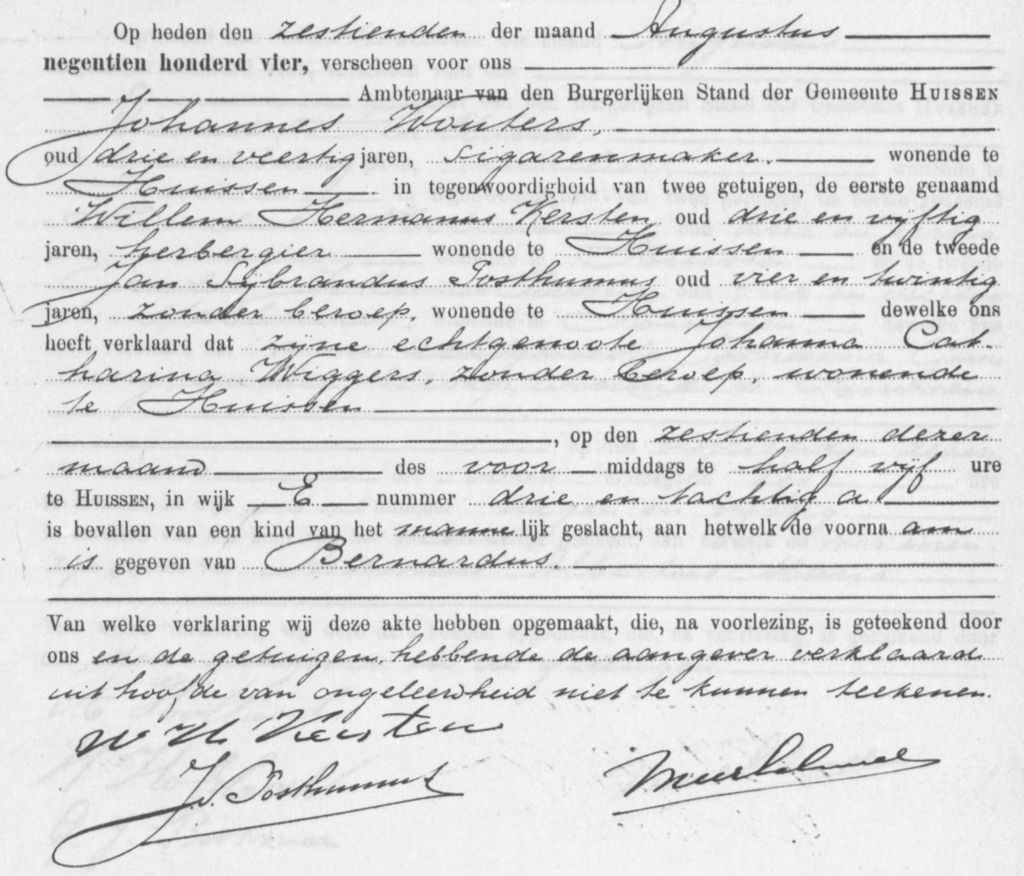 Op heden den zestienden der maand Augustus
negentien honderd vier, verscheen voor ons
Ambtenaar van den Burgerlijken Stand der Gemeente HUISSEN
Johannes Wouters,
oud drie en veertig jaren, sigarenmaker. wonende te
Huissen in tegenwoordigheid van twee getuigen, de eerste genaamd
Willem Hermanus Kersten oud drie en vyftig
jaren, herbergier wonende te Huissen en de tweede
Jan Sybrandus Posthumus oud vier en twintig
jaren, zonder beroep, wonende te Huissen dewelke ons
heeft verklaard dat zyne echtgenoote Johanna Cat-
harina Wiggers, zonder beroep, wonende
te Huissen
, op den zestienden dezer
maand des voor middags te half vyf ure
te HUISSEN, in wijk E nummer drie en tachtig a
is bevallen van een kind van het manne lijk geslacht, aan hetwelk de voorna am
is gegeven van Bernardus.
Van welke verklaring wij deze akte hebben opgemaakt, die, na voorlezing, is geteekend door
ons en de getuigen, hebbende de aangever verklaard
uit hoofde van ongeleerdheid niet te kunnen teekenen.
W H Kersten
J. S. Posthumus